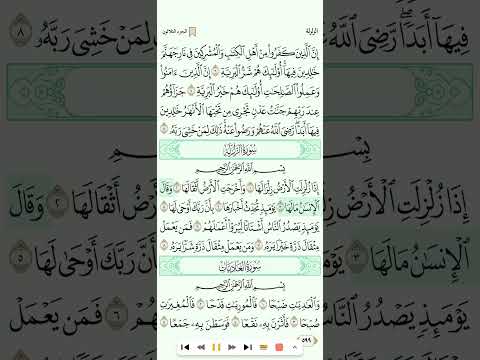 الزلزلة الجزء الثلاثون
إِنَّ ٱلَّذِينَ كَفَرُواْ مِنۡ أَهۡلِ ٱلۡكِتَٰبِ وَٱلۡمُشۡرِكِينَ فِي نَارِ جَهَنَّمَ
خَٰلِدِينَ فِيهَآۚ أُوْلَٰٓئِكَ هُمۡ شَرُّ ٱلۡبَرِيَّةِ ٦ إِنَّ ٱلَّذِينَ ءَامَنُواْ
وَعَمِلُواْ ٱلصَّٰلِحَٰتِ أُوْلَٰٓئِكَ هُمۡ خَيۡرُ ٱلۡبَرِيَّةِ ٧ جَزَآؤُهُمۡ
عِندَ رَبِّهِمۡ جَنَّٰتُ عَدۡنٖ تَجۡرِي مِن تَحۡتِهَا ٱلۡأَنۡهَٰرُ خَٰلِدِينَ
فِيهَآ أَبَدٗاۖ رَّضِيَ ٱللَّهُ عَنۡهُمۡ وَرَضُواْ عَنۡهُۚ ذَٰلِكَ لِمَنۡ خَشِيَ رَبَّهُۥ ٨
سُورَةُ الزَّلْزَلَةِ
بِسۡمِ ٱللَّهِ ٱلرَّحۡمَٰنِ ٱلرَّحِيمِ
إِذَا زُلۡزِلَتِ ٱلۡأَرۡضُ زِلۡزَالَهَا ١ وَأَخۡرَجَتِ ٱلۡأَرۡضُ أَثۡقَالَهَا ٢ وَقَالَ
ٱلۡإِنسَٰنُ مَا لَهَا ٣ يَوۡمَئِذٖ تُحَدِّثُ أَخۡبَارَهَا ٤ بِأَنَّ رَبَّكَ أَوۡحَىٰ لَهَا ٥
يَوۡمَئِذٖ يَصۡدُرُ ٱلنَّاسُ أَشۡتَاتٗا لِّيُرَوۡاْ أَعۡمَٰلَهُمۡ ٦ فَمَن يَعۡمَلۡ
مِثۡقَالَ ذَرَّةٍ خَيۡرٗا يَرَهُۥ ٧ وَمَن يَعۡمَلۡ مِثۡقَالَ ذَرَّةٖ شَرّٗا يَرَهُۥ ٨
سُورَةُ العَادِيَاتِ
بِسۡمِ ٱللَّهِ ٱلرَّحۡمَٰنِ ٱلرَّحِيمِ
وَٱلۡعَٰدِيَٰتِ ضَبۡحٗا ١ فَٱلۡمُورِيَٰتِ قَدۡحٗا ٢ فَٱلۡمُغِيرَٰتِ
صُبۡحٗا ٣ فَأَثَرۡنَ بِهِۦ نَقۡعٗا ٤ فَوَسَطۡنَ بِهِۦ جَمۡعًا ٥
٥٩٩